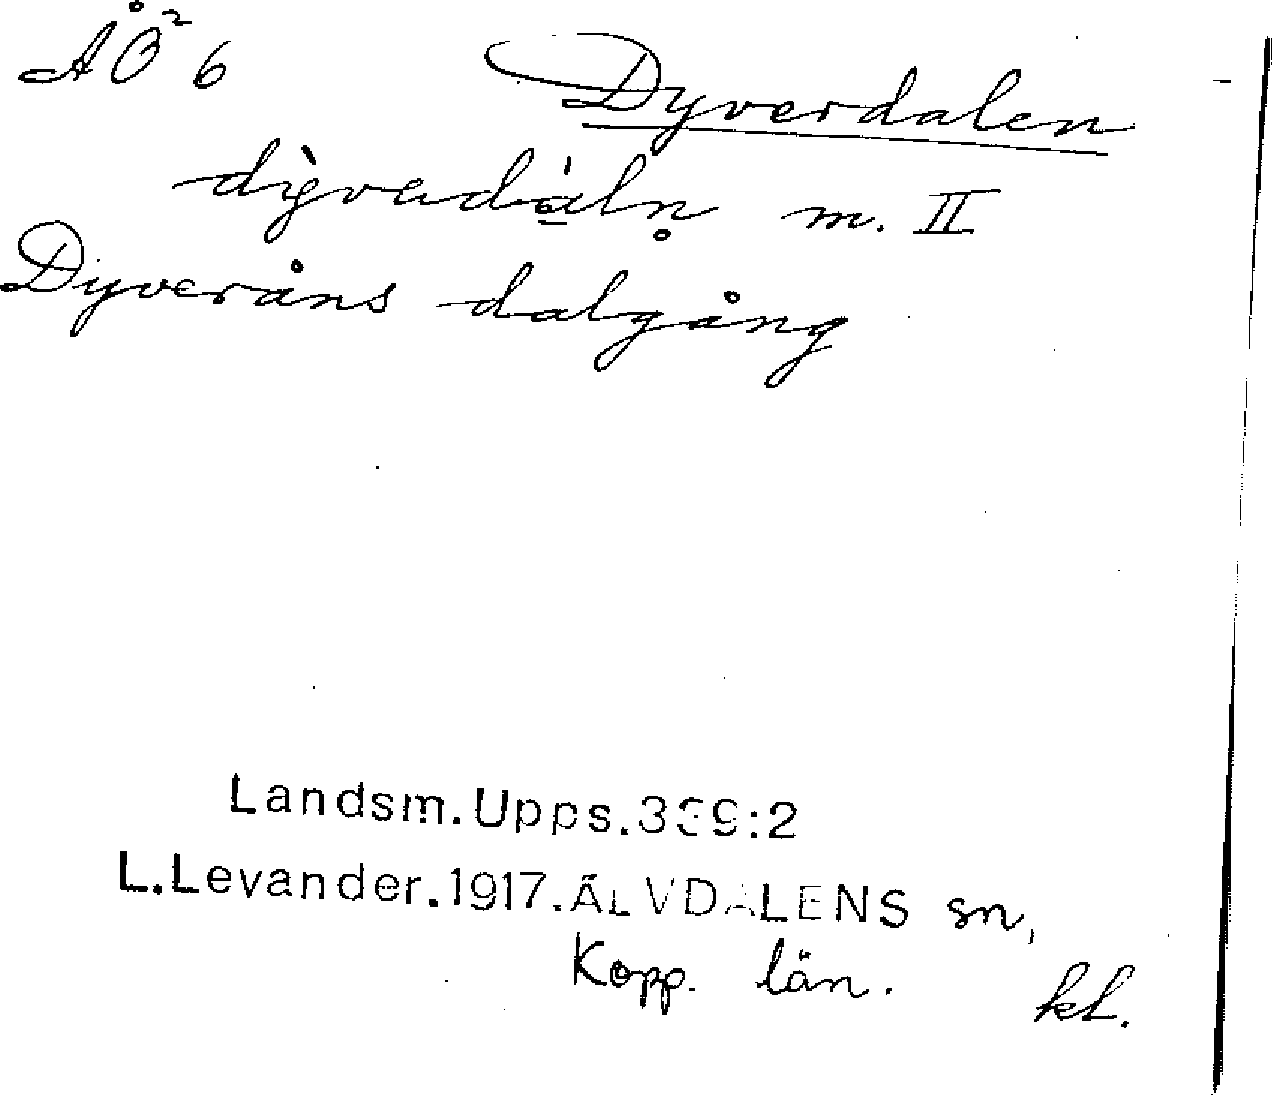 ÅÖ² 6
Dyverdalen
dỳvędáln̥ m. II
Dyveråns dalgång
Landsm.Upps.339:2
L.Levander.1917.ÄLVDALENS sn,
Kopp. län. kl.